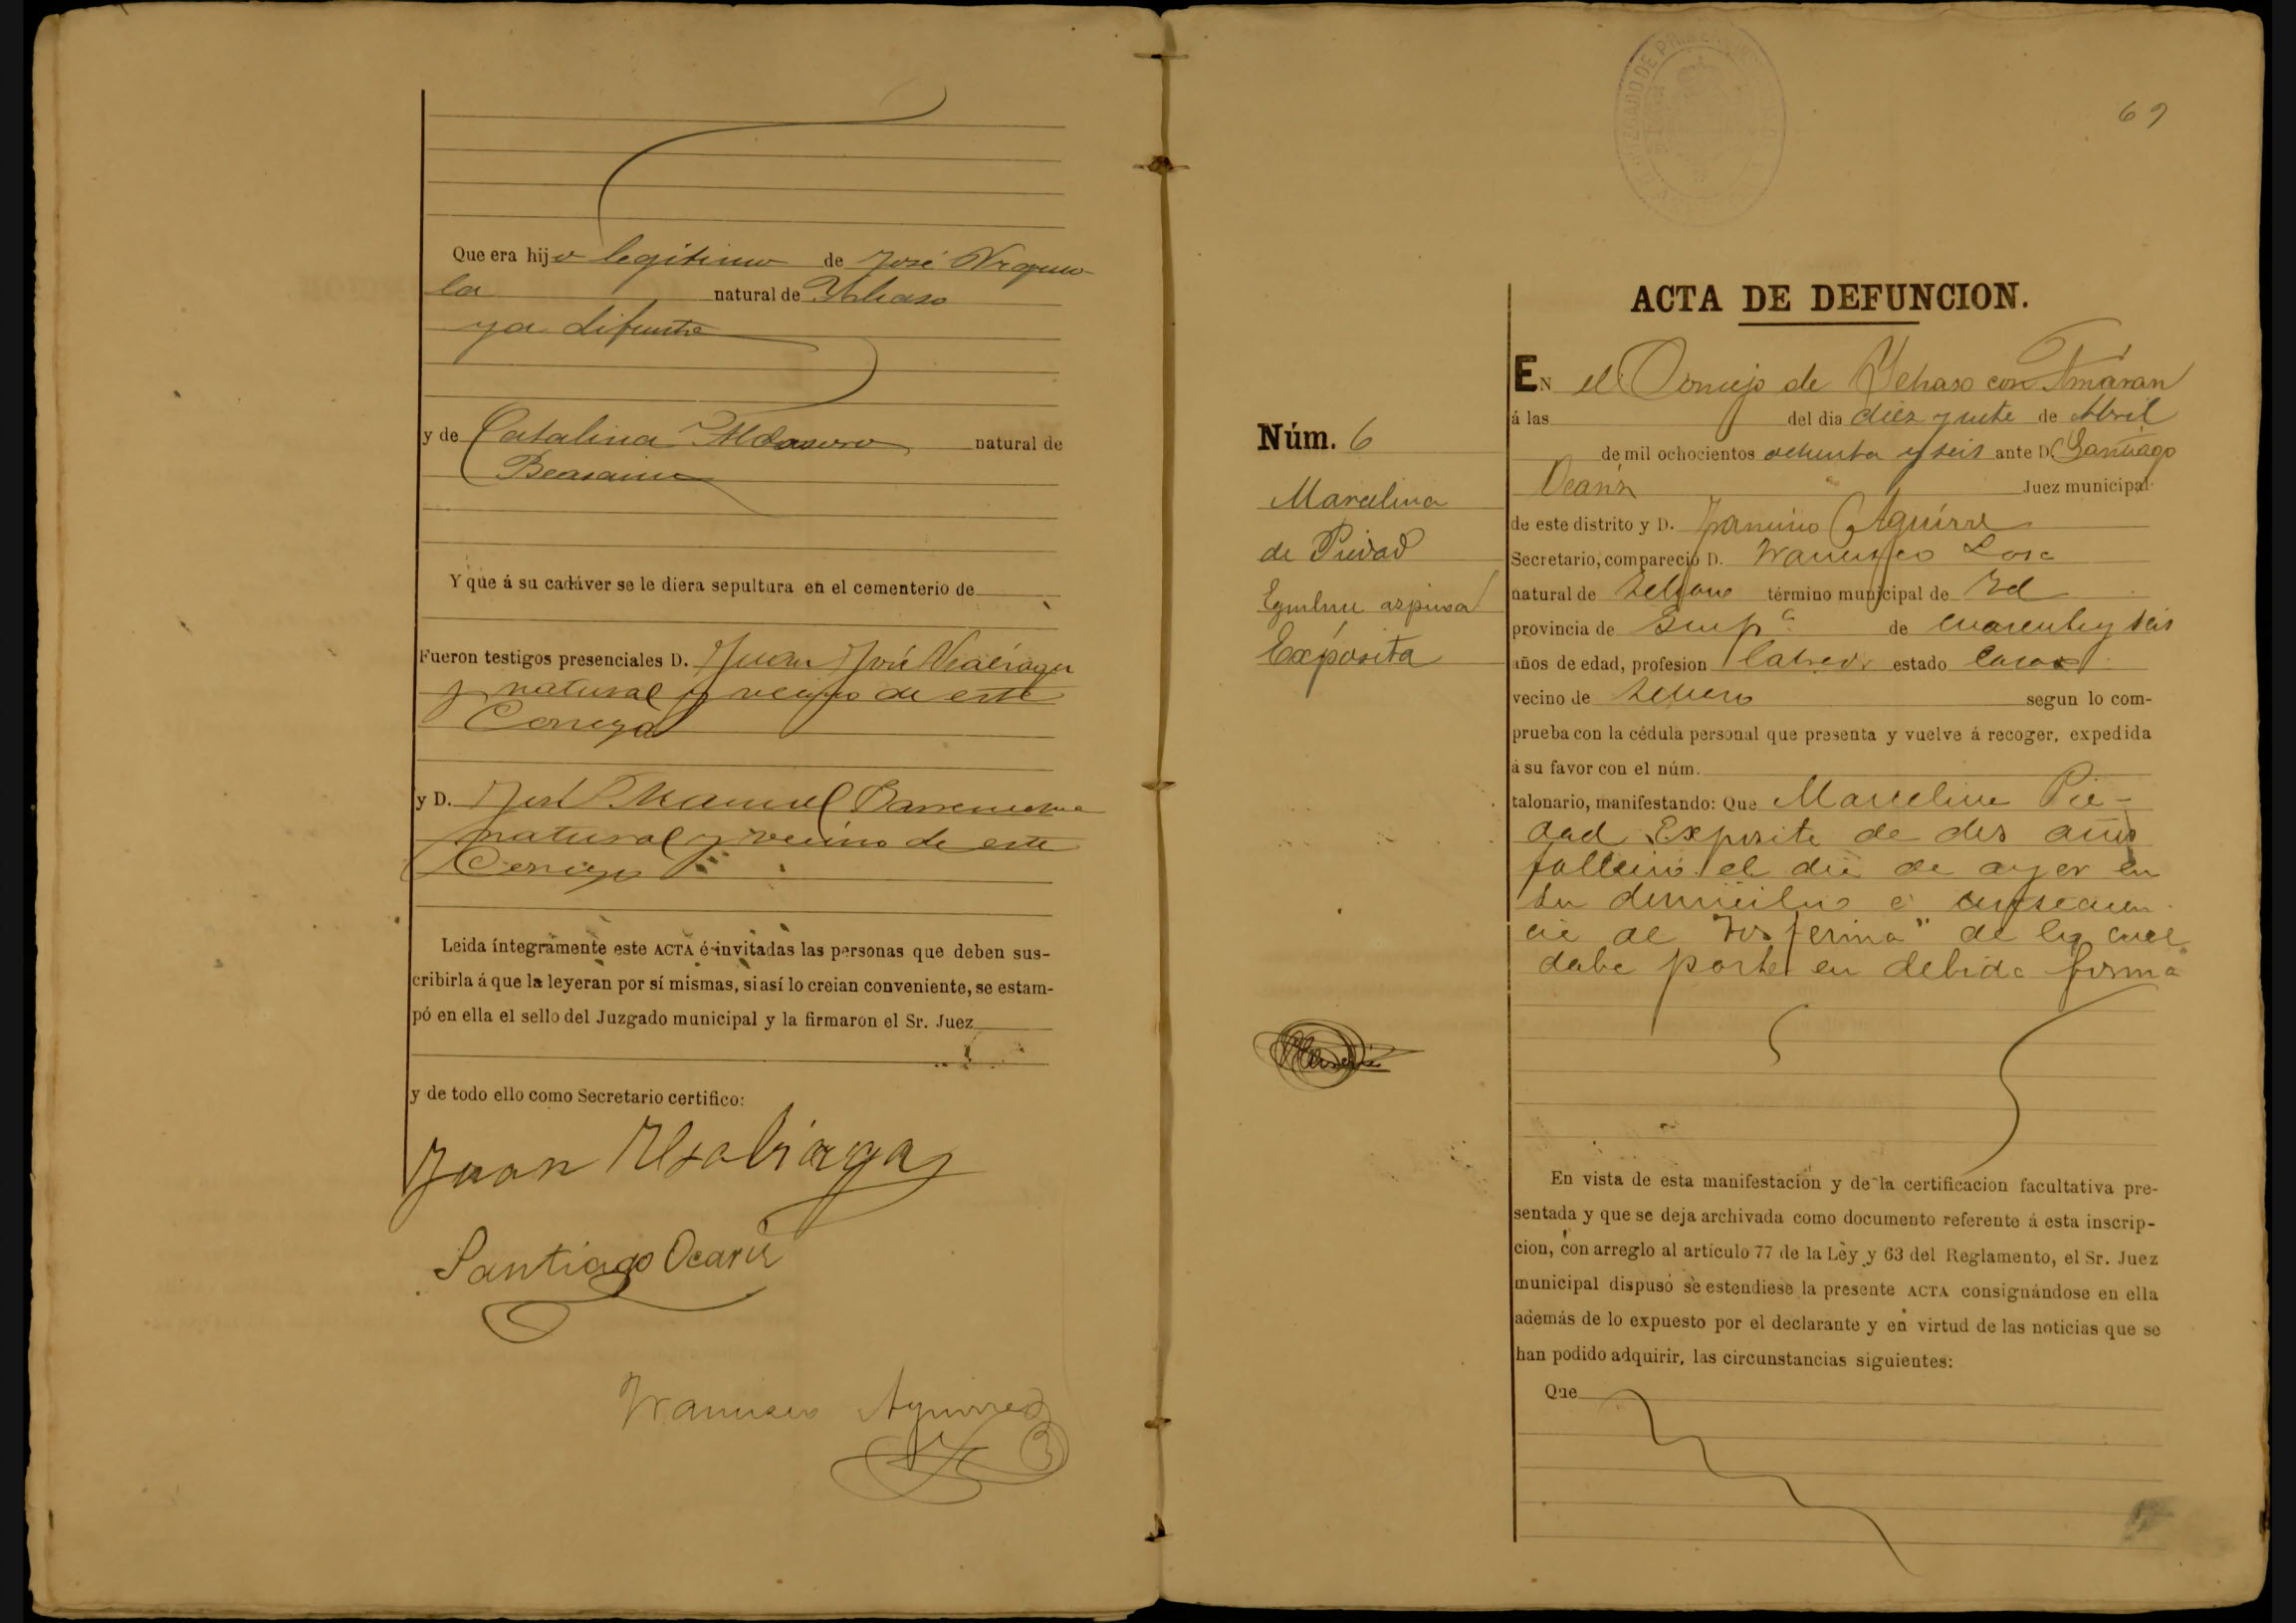 Que era hijo legitimo de José Urquio-
la natural de Ychaso
ya difunto
y de Catalina Aldasoro natural de
Beasain
Y que á su cadáver se le diera sepultura en el cementerio de
Fueron testigos presenciales D. Juan José
y natural y vecino de este
Concejo
y D. José Manuel Barrenechea
natural y vecino de este
Concejo
Leida íntegramente este ACTA é invitadas las personas que deben sus-
cribirla á que la leyeran por sí mismas, si así lo creian conveniente, se estam-
pó en ella el sello del Juzgado municipal y la firmaron el Sr. Juez
y de todo ello como Secretario certifico:
Juan Usabiaga
Santiago Ocariz
Francisco Aguirre
69
ACTA DE DEFUNCION.
EN el Concejo de Ychaso con Arriaran
á las del dia diez y siete de Abril
de mil ochocientos ochenta y seis ante D. Santiago
Ocariz Juez municipal
de este distrito y D. Francisco Aguirre
Secretario, compareció D. Francisco
natural de término municipal de Id
provincia de Guipª de cuarenta y seis
años de edad, profesion labrador estado casado
vecino de segun lo com-
prueba con la cédula personal que presenta y vuelve á recoger, expedida
á su favor con el núm.
talonario, manifestando: Que Marcelina Pie-
dad Exposita de dos años
falleció el dia de ayer en
su domicilio á consecuen
cia de "Tosferina" de la cual
daba parte en debida forma
En vista de esta manifestación y de la certificacion facultativa pre-
sentada y que se deja archivada como documento referente á esta inscrip-
cion, con arreglo al artículo 77 de la Ley y 63 del Reglamento, el Sr. Juez
municipal dispuso se estendiese la presente ACTA consignándose en ella
además de lo expuesto por el declarante y en virtud de las noticias que se
han podido adquirir, las circunstancias siguientes:
Que
Núm. 6
Marcelina
de Piedad
Exposita